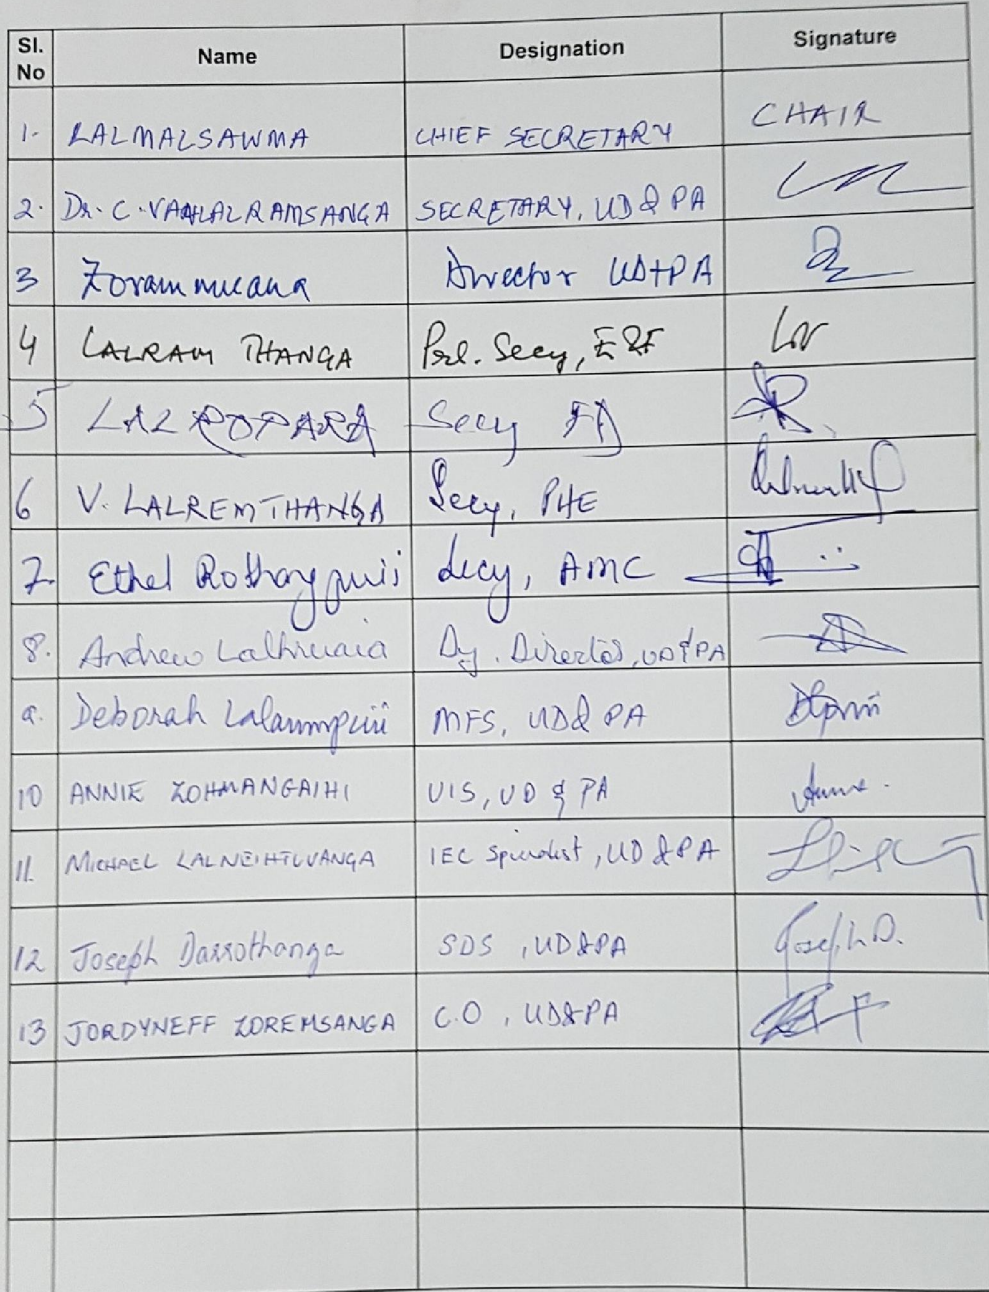 Sl. No Name Designation Signature
1. LALMALSAWMA CHIEF SECRETARY CHAIR
2. Dr. C. VANLALRAMSANGA SECRETARY, UD & PA
3 Zorammuana Director UD+PA
4 LALRAM THANGA Prl. Secy, E&F
5 LALROPARA Secy FD
6 V. LALREMTHANGA Secy, PHE
7. Ethel Rothangpuii Secy, AMC
8. Andrew Lalhruaia Dy. Director, UD&PA
9. Deborah Lalawmpuii MFS, UD& PA
10 ANNIE ZOHMANGAIHI UIS, UD & PA
11. MICHAEL LALNEIHTLUANGA IEC Specialist, UD &PA
12 Joseph Darrothanga SDS , UD&PA Joseph D.
13 JORDYNEFF ZOREMSANGA C.O , UD&PA